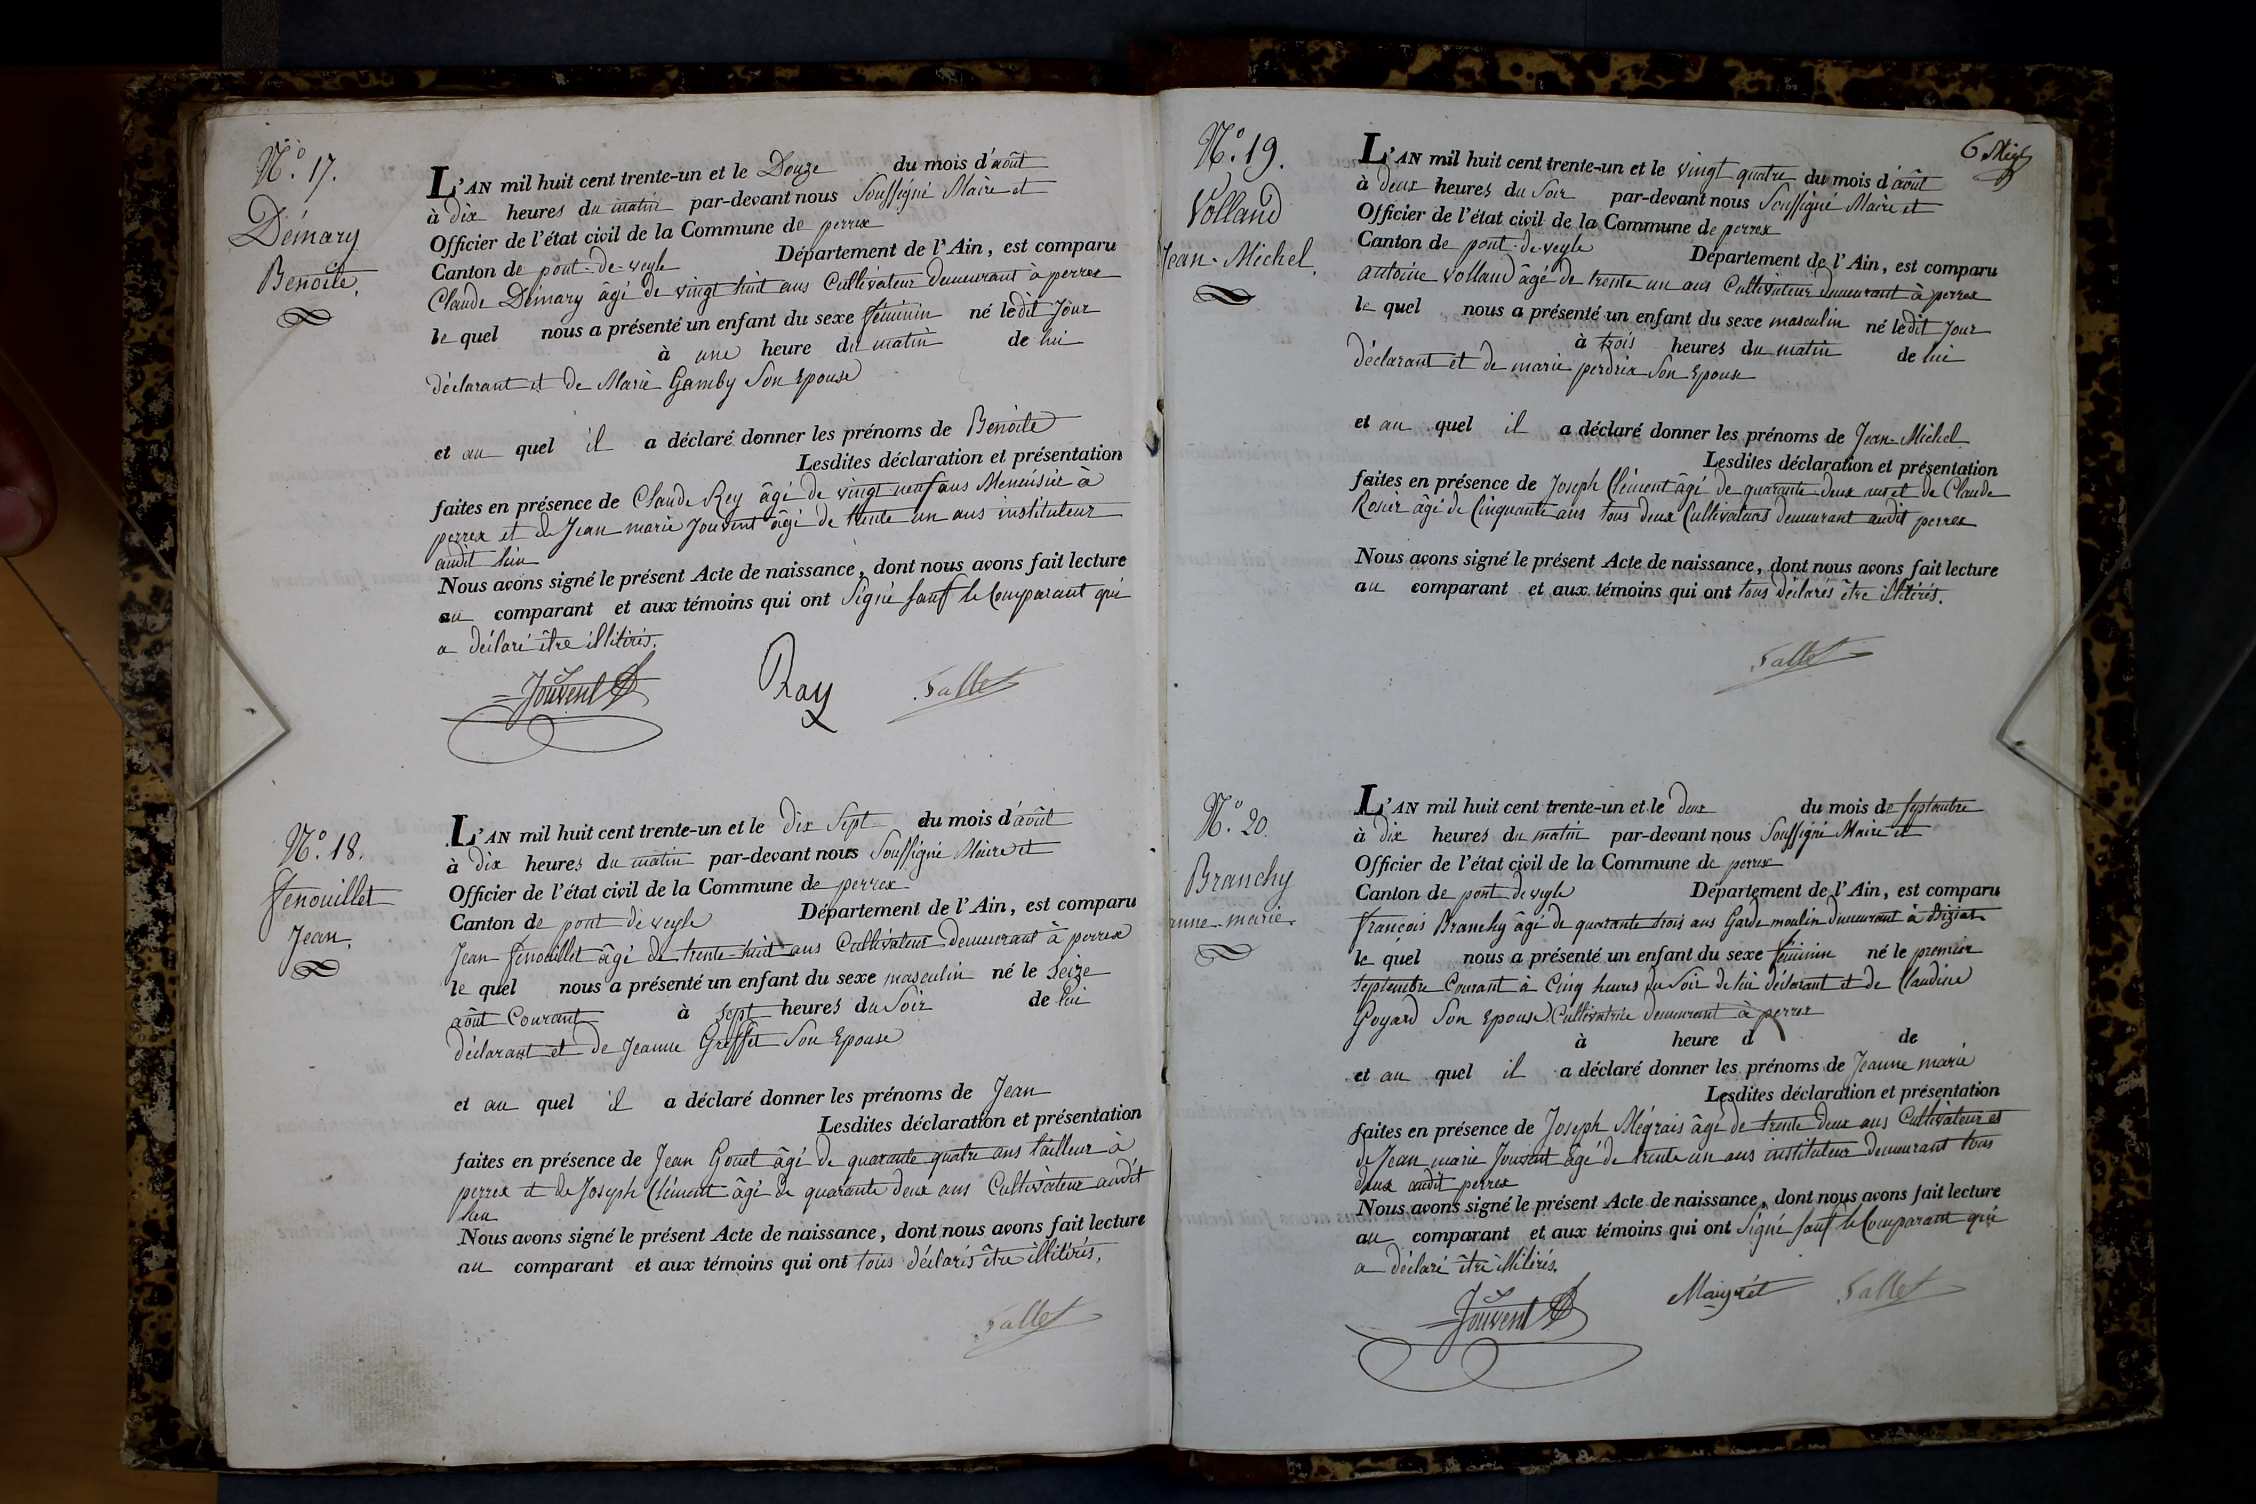 N.° 17.
Démary
Benoite.
L'AN mil huit cent trente-un et le Douze du mois d'août
à dix heures du matin par-devant nous Soussigné Maire et
Officier de l'état civil de la Commune de perrex
Canton de pont-de-veyle Département de l'Ain, est comparu
Claude Démary âgé de vingt huit ans Cultivateur demeurant à perrex
le quel nous a présenté un enfant du sexe féminin né ledit Jour
à une heure du matin de lui
déclarant et de Marie Gamby Son Epouse
et au quel il a déclaré donner les prénoms de Benoite
Lesdites déclaration et présentation
faites en présence de Claude Rey âgé de vingt neuf ans Menuisier à
perrex et de Jean marie Jouvent âgé de trente un ans instituteur
audit lieu
Nous avons signé le présent Acte de naissance, dont nous avons fait lecture
au comparant et aux témoins qui ont Signé sauf le Comparant qui
a déclaré être illitérés.
Jouvent Ray Sallet
N.° 18.
fenouillet
Jean.
L'AN mil huit cent trente-un et le dix Sept du mois d'août
à dix heures du matin par-devant nous Soussigné Maire et
Officier de l'état civil de la Commune de perrex
Canton de pont de veyle Département de l'Ain, est comparu
Jean fenouillet âgé de trente-huit ans Cultivateur demeurant à perrex
le quel nous a présenté un enfant du sexe masculin né le seize
août Courant à sept heures du Soir de lui
déclarant et de Jeanne Greffet Son Epouse
et au quel il a déclaré donner les prénoms de Jean
Lesdites déclaration et présentation
faites en présence de Jean Gouel âgé de quarante quatre ans tailleur à
perrex et de Joseph Clément âgé de quarante deux ans Cultivateur audit
lieu
Nous avons signé le présent Acte de naissance, dont nous avons fait lecture
au comparant et aux témoins qui ont tous déclarés être illitérés.
Sallet
6
N.° 19.
Volland
Jean-Michel.
L'AN mil huit cent trente-un et le vingt quatre du mois d'août
à deux heures du Soir par-devant nous Soussigné Maire et
Officier de l'état civil de la Commune de perrex
Canton de pont-de-veyle Département de l'Ain, est comparu
antoine Volland âgé de trente un ans Cultivateur demeurant à perrex
le quel nous a présenté un enfant du sexe masculin né ledit Jour
à trois heures du matin de lui
déclarant et de marie perdrix Son Epouse
et au quel il a déclaré donner les prénoms de Jean-Michel
Lesdites déclaration et présentation
faites en présence de Joseph Clément âgé de quarante-deux ans et de Claude
Rosier âgé de Cinquante ans tous deux Cultivateurs demeurant audit perrex
Nous avons signé le présent Acte de naissance, dont nous avons fait lecture
au comparant et aux témoins qui ont tous déclarés être illitérés.
Sallet
N.° 20.
Branchy
anne-marie.
L'AN mil huit cent trente-un et le deux du mois de Septembre
à dix heures du matin par-devant nous Soussigné Maire et
Officier de l'état civil de la Commune de perrex
Canton de pont de veyle Département de l'Ain, est comparu
françois Branchy âgé de quarante trois ans Garde moulin demeurant à Biziat
le quel nous a présenté un enfant du sexe féminin né le premier
Septembre Courant à Cinq heures du Soir de lui déclarant et de Claudine
Goyard Son Epouse Cultivatrice demeurant à perrex
à heure d de
et au quel il a déclaré donner les prénoms de Jeanne marie
Lesdites déclaration et présentation
faites en présence de Joseph Mégrais âgé de trente deux ans Cultivateur et
de Jean marie Jouvent âgé de trente un ans instituteur demeurant tous
deux audit perrex
Nous avons signé le présent Acte de naissance, dont nous avons fait lecture
au comparant et aux témoins qui ont Signé sauf le Comparant qui
a déclaré être illitérés.
Jouvent Maigrét Sallet